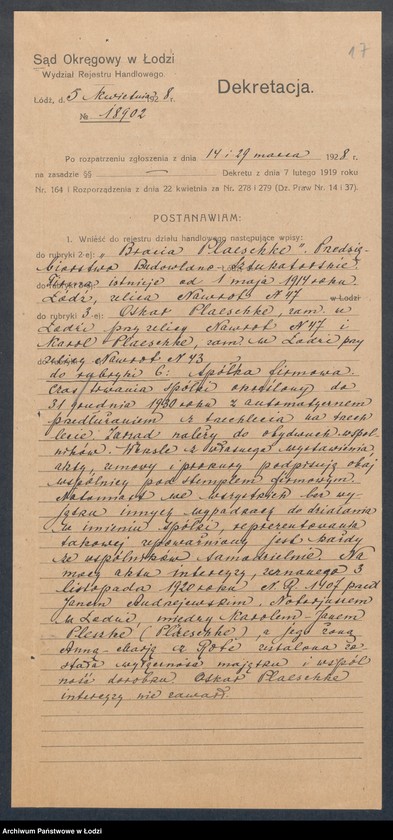 17
Sąd Okręgowy w Łodzi
Wydział Rejestru Handlowego.
Łódź, d. 5 kwietnia 1928 r.
№ 18902
Dekretacja.
Po rozpatrzeniu zgłoszenia z dnia 14 i 29 marca 1928 r.
na zasadzie §§ — Dekretu z dnia 7 lutego 1919 roku
Nr. 164 i Rozporządzenia z dnia 22 kwietnia za Nr. 278 i 279 (Dz. Praw Nr. 14 i 37).
POSTANAWIAM:
1. Wnieść do rejestru działu handlowego następujące wpisy:
do rubryki 2-ej: „Bracia Plaeschke". Przedsię-
biorstwo Budowlano-Sztukatorskie.
Firma istnieje od 1 maja 1914 roku.
Łódź, ulica Nawrot N 47 w Łodzi
do rubryki 3-ej: Oskar Plaeschke, zam. w
Łodzi przy ulicy Nawrot N 47 i
Karol Plaeschke, zam. w Łodzi przy
ulicy Nawrot N 43
do rubryki 6: Spółka firmowa.
Czas trwania spółki określony do
31 grudnia 1930 roku z automatycznem
przedłużaniem z trzechlecia na trzech
lecie. Zarząd należy do obydwuch wspól-
ników. Weksle z własnego wystawienia
akty, umowy i prokury podpisują obaj
wspólnicy pod stemplem firmowym.
Natomiast we wszystkich bez wy-
jątku innych wypadkach do działania
w imieniu spółki, reprezentowania
takowej upoważniony jest każdy
ze wspólników samodzielnie. Na
mocy aktu intercyzy, zeznanego 3
listopada 1920 roku N R 1907 przed
Janem Andrzejewskim, Notarjuszem
w Łodzi, między Karolem-Janem
Pleszke (Plaeschke), a jego żoną
Anną-Marją z Gote ustalona zo-
stała wyłączność majątku i wspól
ność dorobku. Oskar Plaeschke
intercyzy nie zawarł.
Archiwum Państwowe w Łodzi